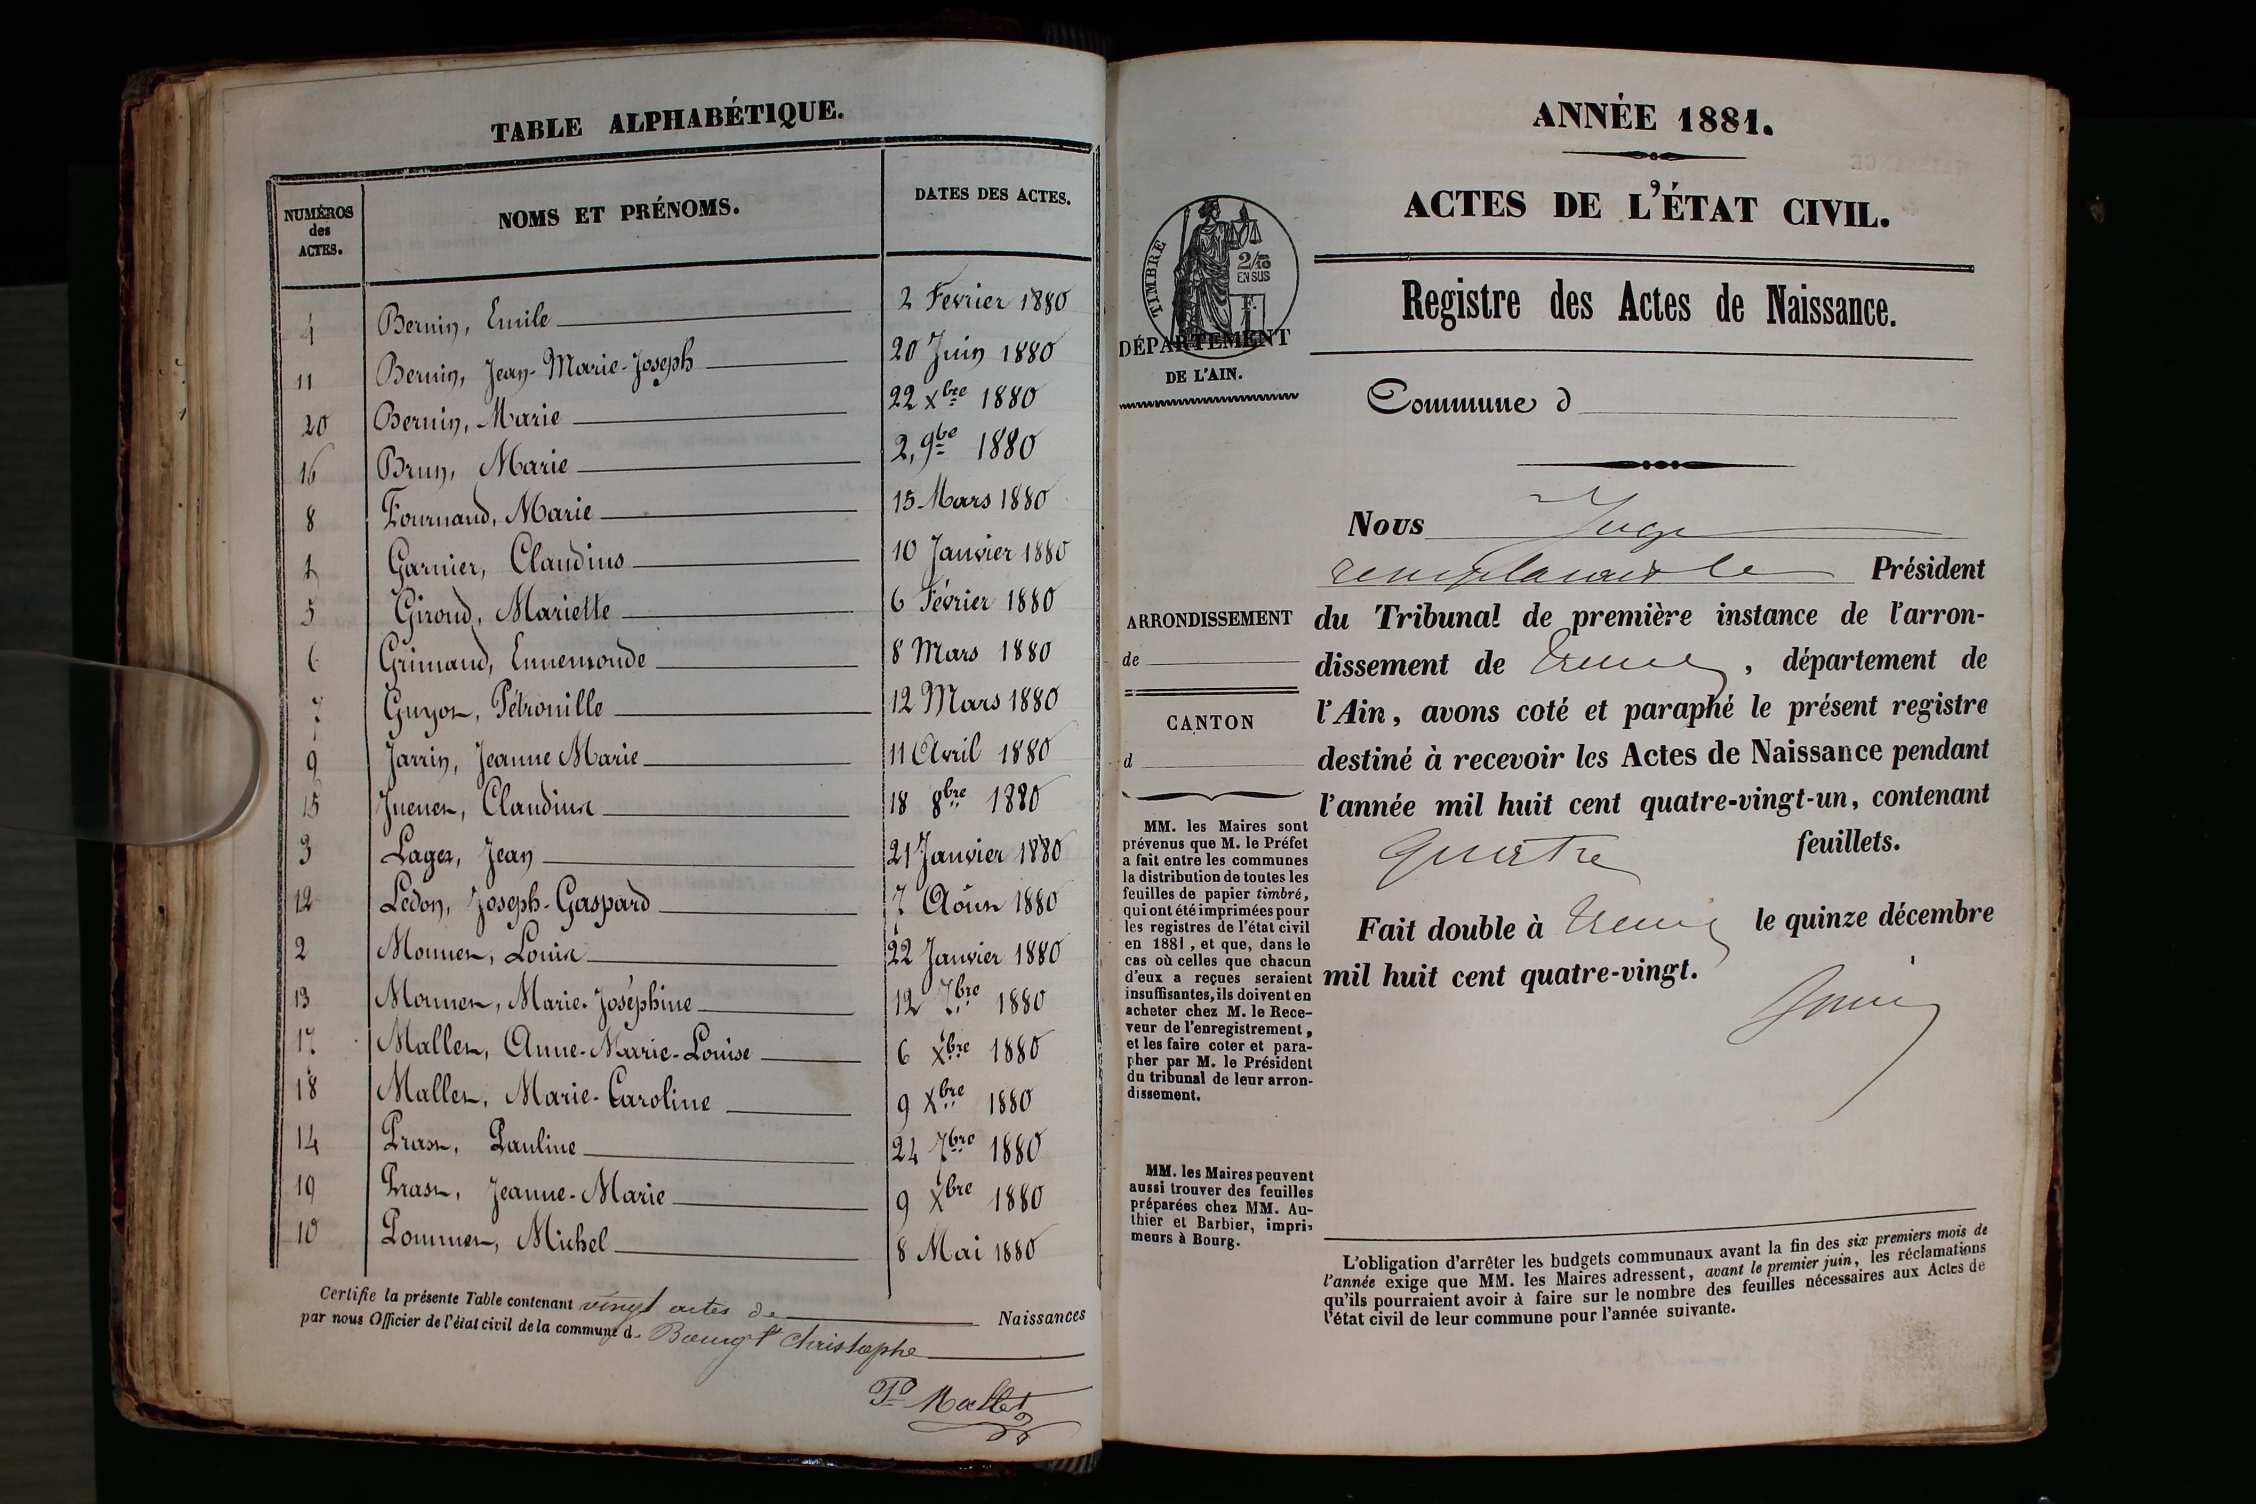 TABLE ALPHABÉTIQUE.
NUMÉROS des ACTES. NOMS ET PRÉNOMS. DATES DES ACTES.
4 Bernin, Emile 2 Fevrier 1880
11 Bernin, Jean-Marie-Joseph 20 Juin 1880
20 Bernin, Marie 22 Xbre 1880
16 Brun, Marie 2, 9be 1880
8 Fournand, Marie 15 Mars 1880
1 Garnier, Claudius 10 Janvier 1880
5 Giroud, Mariette 6 Février 1880
6 Grimand, Ennemonde 8 Mars 1880
7 Guyot, Pétronille 12 Mars 1880
9 Jarrin, Jeanne Marie 11 Avril 1880
15 Claudine 18 8bre 1880
3 Jean 21 Janvier 1880
12 Ledon, Joseph-Gaspard 7 Août 1880
2 Monnet, Louise 22 Janvier 1880
13 Monnet, Marie-Joséphine 12 7bre 1880
17 Mallet, Anne-Marie-Louise 6 Xbre 1880
18 Mallet, Marie-Caroline 9 Xbre 1880
14 Prast, Pauline 24 7bre 1880
19 Prast, Jeanne-Marie 9 Xbre 1880
10 Pommet, Michel 8 Mai 1880
Certifie la présente Table contenant vingt actes de Naissances
par nous Officier de l'état civil de la commune d Bourg St Christophe
Mallet
ANNÉE 1881.
ACTES DE L'ÉTAT CIVIL.
TIMBRE
2/10
EN SUS
DÉPARTEMENT
DE L'AIN.
Registre des Actes de Naissance.
Commune d
Nous Juge
remplaçant le Président
du Tribunal de première instance de l'arron-
dissement de Trévoux, département de
l'Ain, avons coté et paraphé le présent registre
destiné à recevoir les Actes de Naissance pendant
l'année mil huit cent quatre-vingt-un, contenant
quatre feuillets.
Fait double à Trévoux le quinze décembre
mil huit cent quatre-vingt.
ARRONDISSEMENT
de
CANTON
d
MM. les Maires sont
prévenus que M. le Préfet
a fait entre les communes
la distribution de toutes les
feuilles de papier timbré,
qui ont été imprimées pour
les registres de l'état civil
en 1881, et que, dans le
cas où celles que chacun
d'eux a reçues seraient
insuffisantes, ils doivent en
acheter chez M. le Rece-
veur de l'enregistrement,
et les faire coter et para-
pher par M. le Président
du tribunal de leur arron-
dissement.
MM. les Maires peuvent
aussi trouver des feuilles
préparées chez MM. Au-
thier et Barbier, impri-
meurs à Bourg.
L'obligation d'arrêter les budgets communaux avant la fin des six premiers mois de
l'année exige que MM. les Maires adressent, avant le premier juin, les réclamations
qu'ils pourraient avoir à faire sur le nombre des feuilles nécessaires aux Actes de
l'état civil de leur commune pour l'année suivante.